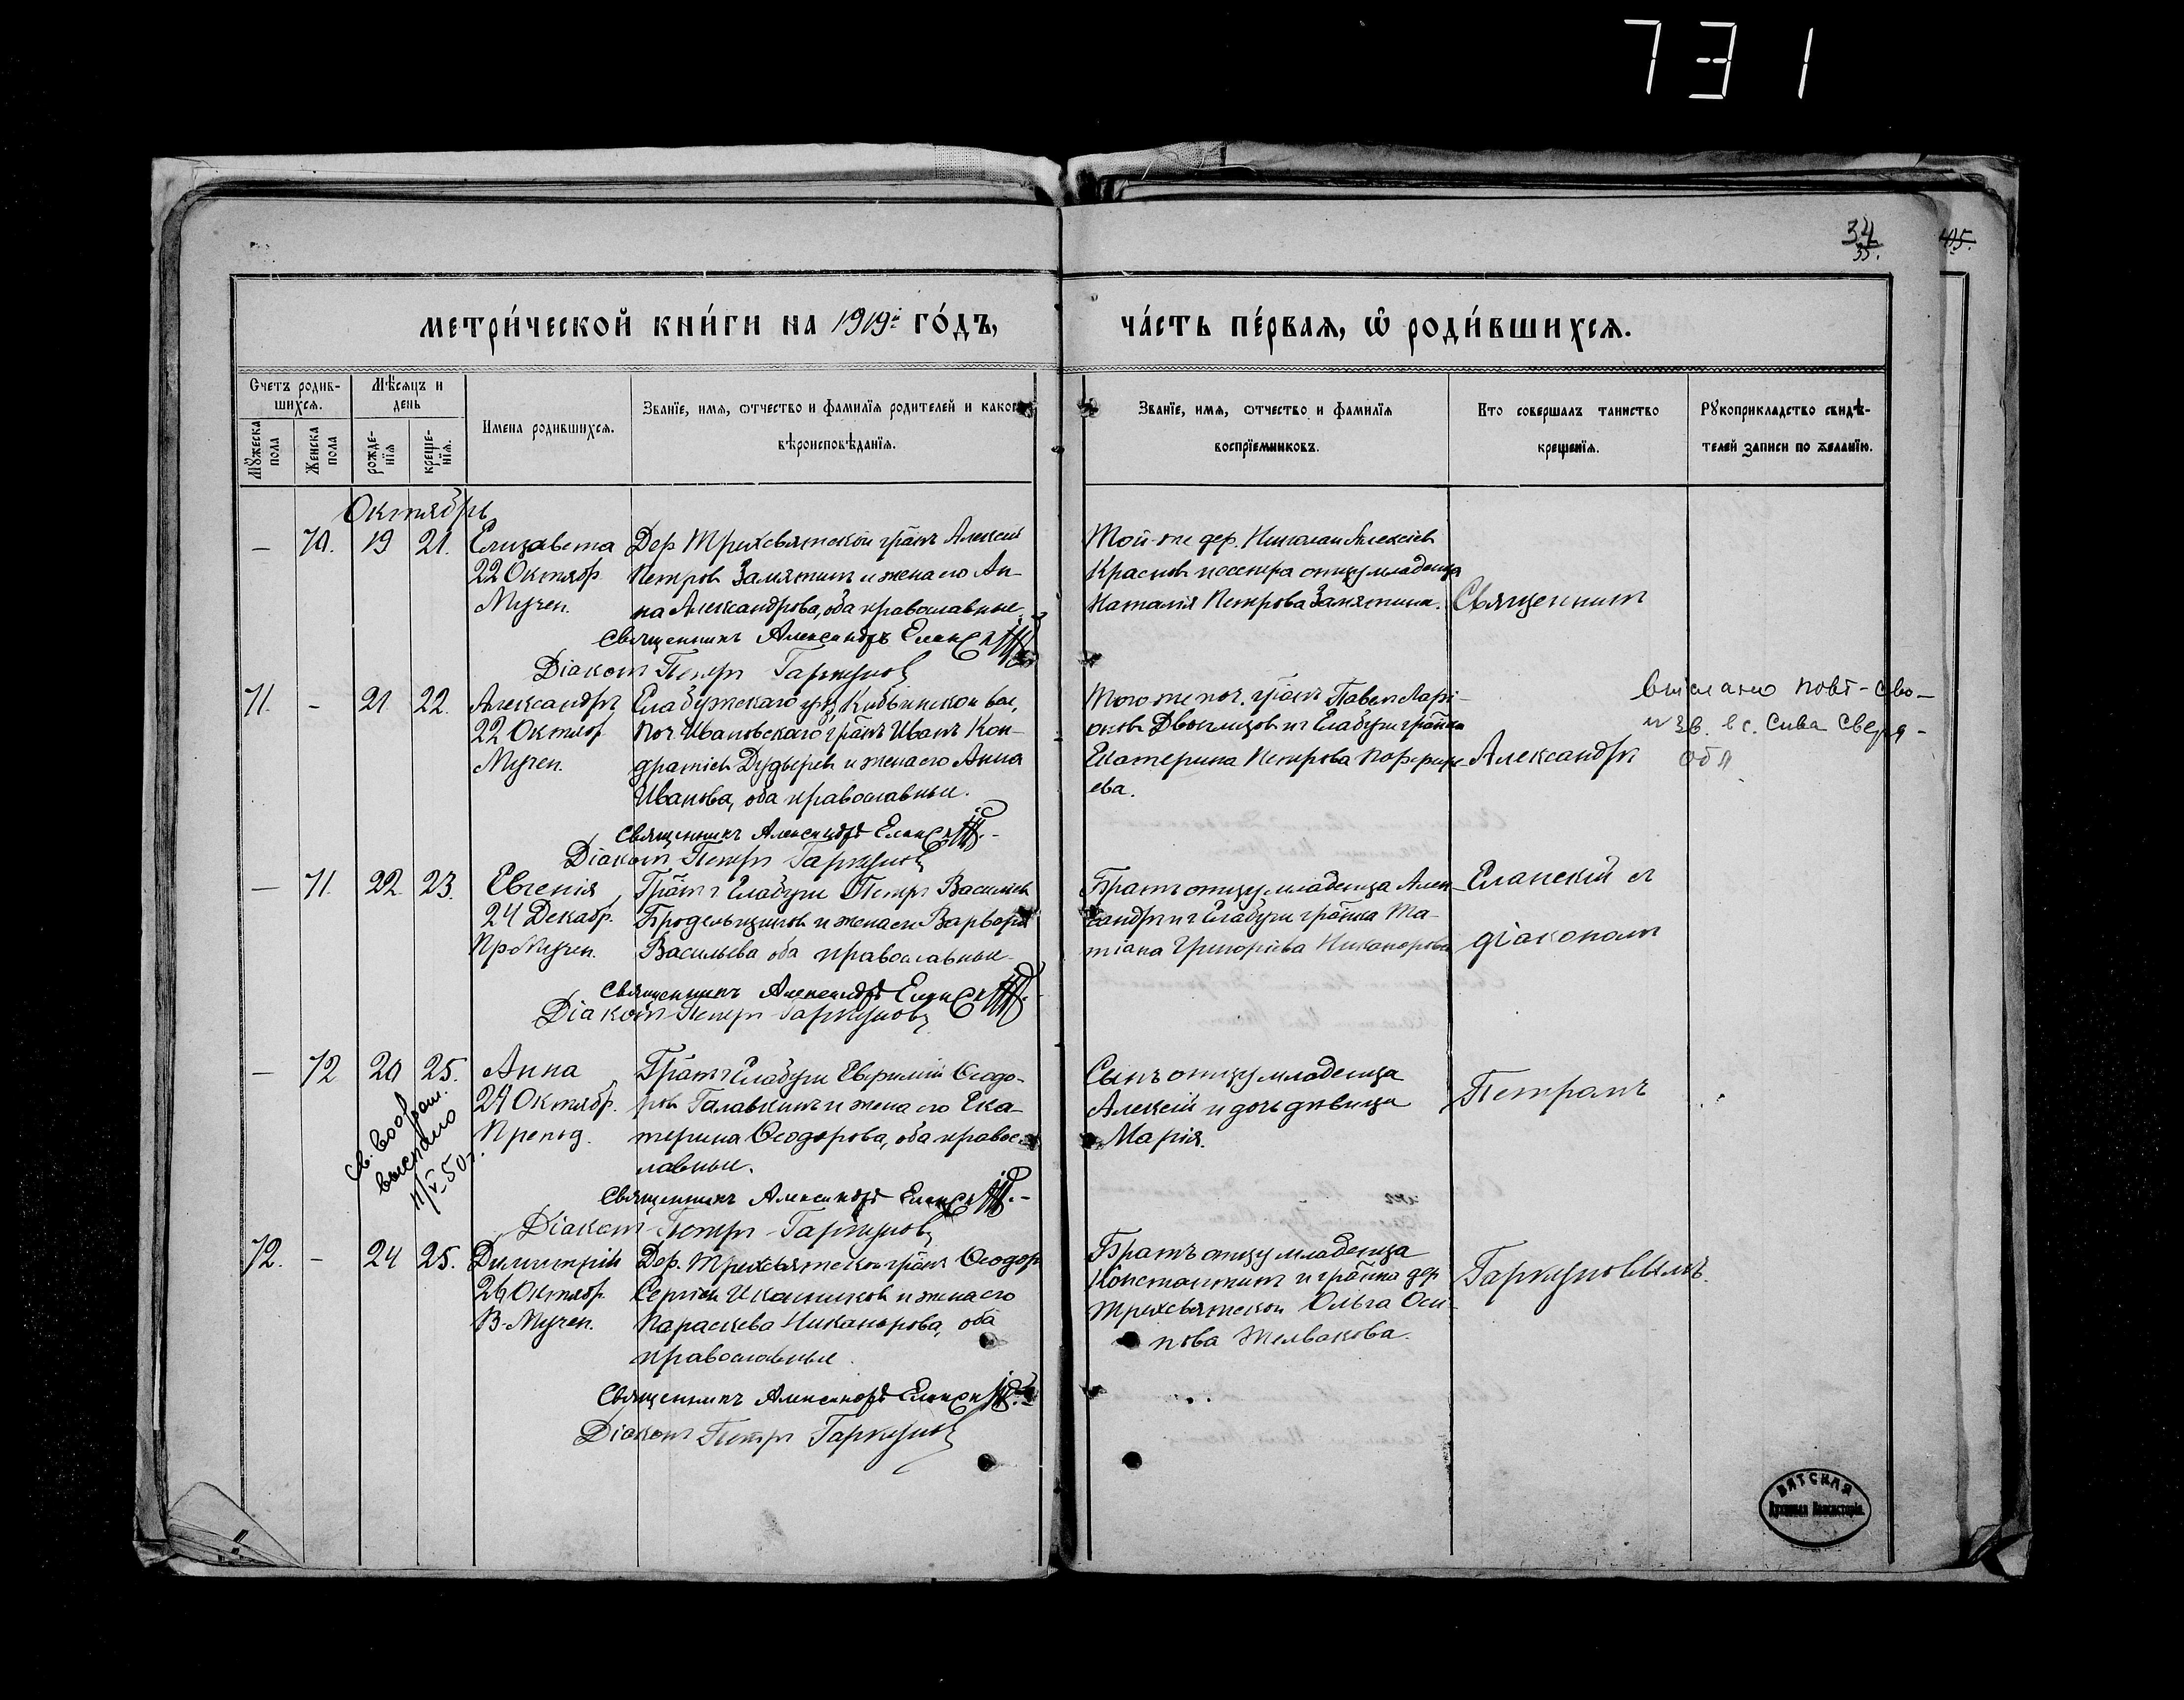 731
34
35.
415.
МЕТРИ́ЧЕСКОЙ КНИ́ГИ НА 1919й ГО́ДЪ,
ЧА́СТЬ ПЕ́РВАЯ, Ѡ РОДИ́ВШИХСЯ.
Счетъ родив-
шихся.
Мѣсяцъ и
день
Мужеска
пола
Женска
пола
рожде-
нїя
креще-
нїя.
Имена родившихся.
Званїе, имя, ѡтчество и фамилїя родителей и каког
вѣроисповѣданїя.
Званїе, имя, ѡтчество и фамилїя
воспрїемниковъ.
Кто совершалъ таинство
крещенїя.
Рукоприкладство свидѣ-
телей записи по желанїю.
Октябрь
— 70. 19 21. Елизавета Дер. Трихсвятской гражд. Алексѣй
22 Октябр. Петров Замятин и жена его Ан-
Мучен. на Александрова, оба православные
Священникъ Александръ Еланскій
Діаконъ Петръ Гаркуновъ
Той-же дер. Николай Алексѣев
Краснов и сестра отцу младенца
Наталія Петрова Замятина.
Священникъ
71. – 21 22. Александръ Елабужскаго у. Кибьинской вол,
22 Октябр поч. Ивановскаго гражд. Иванъ Кон-
Мучен. дратіев Дудырев и жена его Анна
Иванова, оба православные.
Священникъ Александръ Еланскій
Діаконъ Петръ Гаркуновъ
Того же поч. гражд. Павелъ Лари-
онов и г. Елабуги гражд.
Екатерина Петрова Порфирь-
ева.
Александръ
выслано повт-
из в. с. Сива
обл
— 71. 22 23. Евгенія Гражд. г. Елабуги Петръ Васильев
24 Декабр. Бродельщиков и жена его Варвара
ПрМучен. Васильева оба православные
Священникъ Александръ Еланскій
Діаконъ Петръ Гаркуновъ
Братъ отцу младенца Алек-
сандръ и г. Елабуги гражд. Та-
тіана Григоріева Никанорова
Еланскій с
діакономъ
— 72 20 25. Анна Гражд. г. Елабуги Евфимій Ѳеодо-
24 Октябр. ров Галавкинъ и жена его Ека-
Препод. терина Ѳеодорова, оба правос-
лавные.
св.
выслано
11/V-50 г.
Священникъ Александръ Еланскій
Діаконъ Петръ Гаркуновъ
Сынъ отцу младенца
Алексій и дочь дѣвица
Марія.
Петромъ
72. – 24 25. Димитрій Дер. Трихсвятской гражд. Ѳеодор
26 Октябр. Сергіев Иконников и жена его
В-Мучен. Параскева Никанорова, оба
православные.
Священникъ Александръ Еланскій
Діаконъ Петръ Гаркуновъ
Братъ отцу младенца
Константинъ и гражд. дер
Трихсвятской Ольга Оси-
пова Желвакова.
Гаркуновымъ.
ВЯТСКАЯ
Духовная Консисторія.